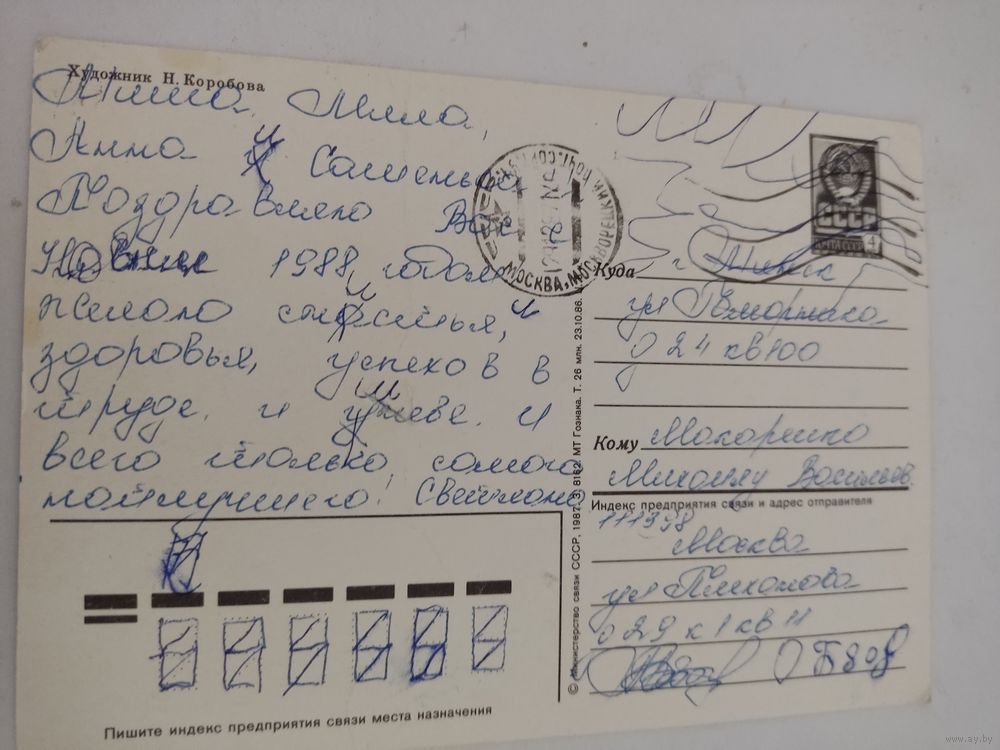 Художник Н. Коробова
Миша, Мила,
Анна и Сашенька
Поздравляю Вас с
Новым 1988 годом
желаю счастья, и
здоровья, успехов в
труде. и учебе. и
всего только самого
наилучшего! Светлана
МОСКВА, МОСКВОРЕЦКИЙ ПОЧТ.
СССР
ПОЧТА СССР
4
Куда г. Минск
ул
д 24 кв 100
Кому Макаренко
Михаилу Васильев.
Индекс предприятия связи и адрес отправителя
111398
Москва
ул Плеханова
д 29 к 1 кв 11
© Министерство связи СССР, 1987. З. 8162. МТ Гознака. Т. 26 млн. 23.10.86.
Пишите индекс предприятия связи места назначения
www.ay.by